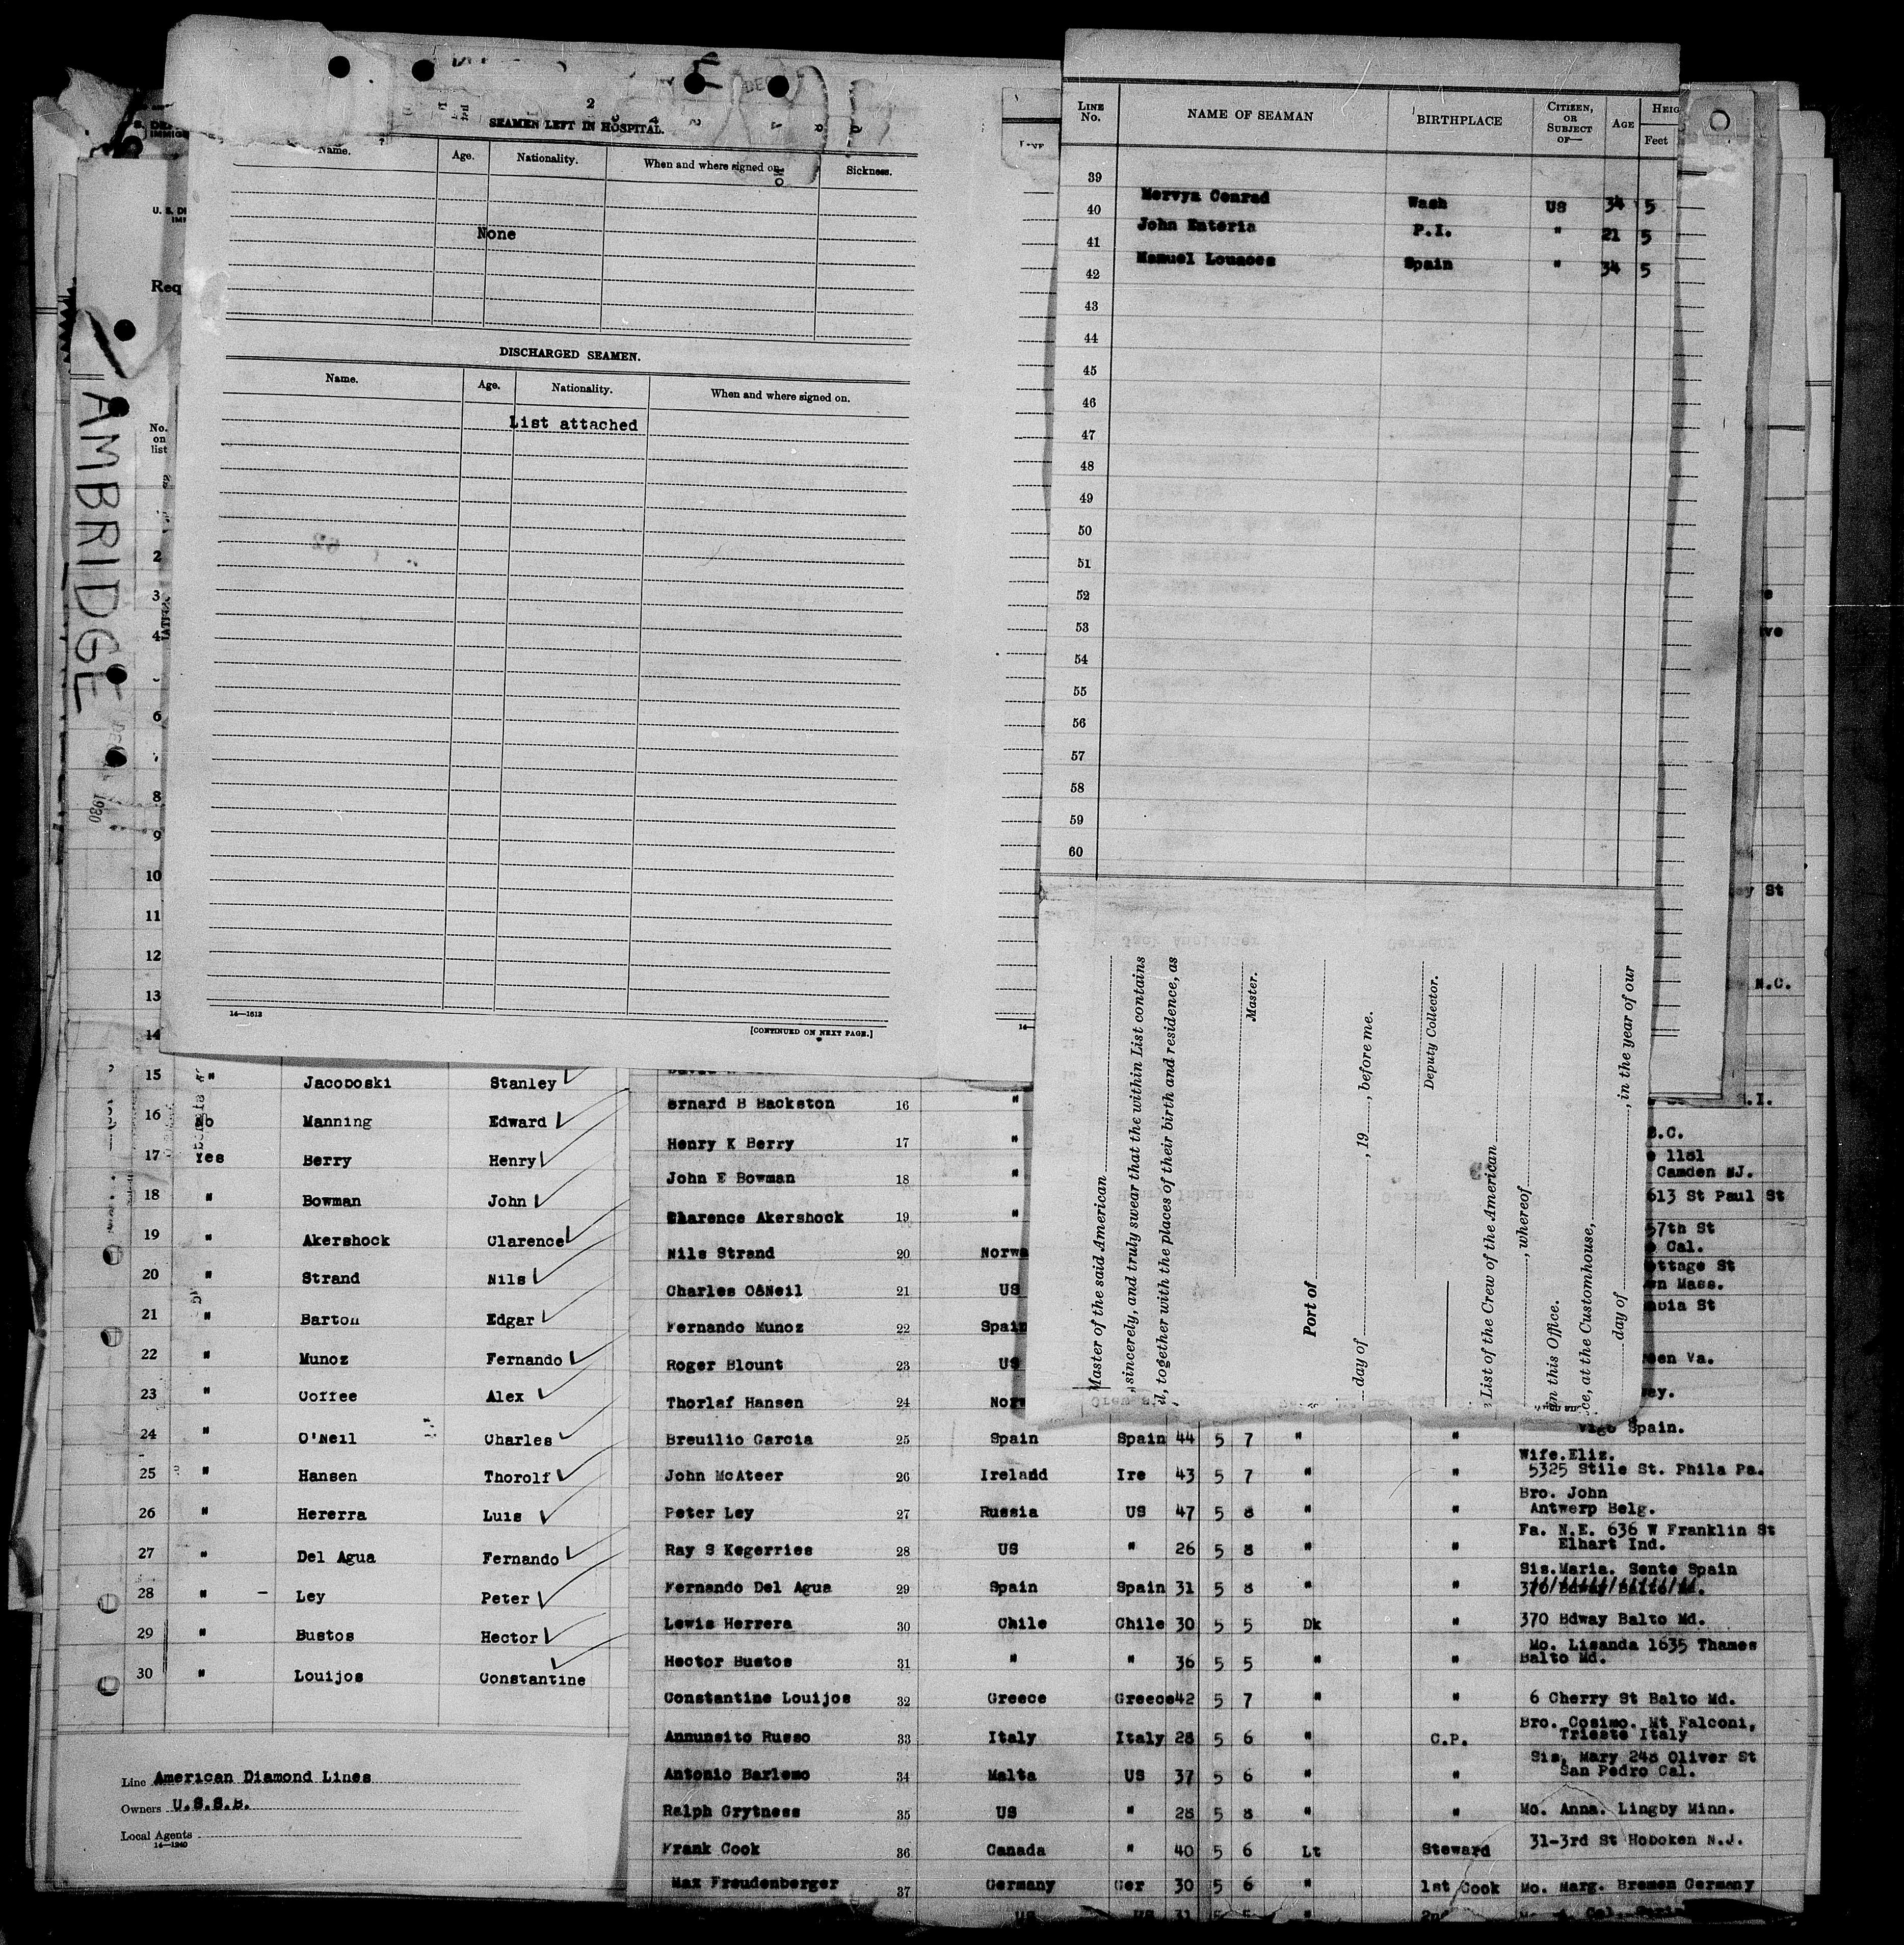 2
SEAMEN LEFT IN HOSPITAL.
Name. Age. Nationality. When and where signed on. Sickness.
None
DISCHARGED SEAMEN.
Name. Age. Nationality. When and where signed on.
List attached
14—1513
[CONTINUED ON NEXT PAGE.]
AMBRIDGE
1930
Req
No. on list
2
3
4
6
8
9
10
11
12
13
14
LINE No. NAME OF SEAMAN BIRTHPLACE CITIZEN, OR SUBJECT OF— AGE HEIG
Feet
39
40 Mervyn Conrad Wash US 34 5
41 John Enteria P.I. " 21 5
42 Manuel Louaces Spain " 34 5
43
44
45
46
47
48
49
50
51
52
53
54
55
56
57
58
59
60
Master of the said American
, sincerely, and truly swear that the within List contains
d, together with the places of their birth and residence, as
Master.
Port of
day of , 19 , before me.
Deputy Collector.
List of the Crew of the American
, whereof
in this Office.
ce, at the Customhouse,
day of , in the year of our
15 " Jacoboski Stanley
16 No Manning Edward
17 Yes Berry Henry
18 " Bowman John
19 " Akershock Clarence
20 " Strand Nils
21 " Barton Edgar
22 " Munoz Fernando
23 " Coffee Alex
24 " O'Neil Charles
25 " Hansen Thorolf
26 " Hererra Luis
27 " Del Agua Fernando
28 " – Ley Peter
29 " Bustos Hector
30 " Louijos Constantine
Line American Diamond Lines
Owners U.S.S.B.
Local Agents
14—1240
ernard B Backston 16 "
Henry K Berry 17 "
John E Bowman 18 "
Clarence Akershock 19 "
Nils Strand 20 Norwa
Charles O&Neil 21 US
Fernando Munoz 22 Spain
Roger Blount 23 US
Thorlaf Hansen 24 Norw
Breuilio Garcia 25 Spain Spain 44 5 7 " "
John McAteer 26 Ireland Ire 43 5 7 " " Wife.Eliz. 5325 Stile St. Phila Pa.
Peter Ley 27 Russia US 47 5 8 " " Bro. John Antwerp Belg.
Ray S Kegerries 28 US " 26 5 8 " " Fa. N.E. 636 W Franklin St Elhart Ind.
Fernando Del Agua 29 Spain Spain 31 5 8 " " Sis.Maria. Sente Spain
370 Bdway Balto Md.
Lewis Herrera 30 Chile Chile 30 5 5 Dk " 370 Bdway Balto Md.
Hector Bustos 31 " " 36 5 5 " " Mo. Lisanda 1635 Thames Balto Md.
Constantine Louijos 32 Greece Greece 42 5 7 " " 6 Cherry St Balto Md.
Annunsito Russo 33 Italy Italy 28 5 6 " C.P. Bro. Cosimo. Mt Falconi, Trieste Italy
Antonio Barlemo 34 Malta US 37 5 6 " " Sis, Mary 248 Oliver St San Pedro Cal.
Ralph Grytness 35 US " 28 5 8 " " Mo. Anna. Lingby Minn.
Frank Cook 36 Canada " 40 5 6 Lt Steward 31-3rd St Hoboken N.J.
Max Freudenberger 37 Germany Ger 30 5 6 " 1st Cook Mo. Marg. Bremen Germany
St
N.C.
S.C.
1181
Camden NJ.
613 St Paul St
57th St
Cal.
ottage St
en Mass.
mbia St
een Va.
ey.
Vigo Spain.